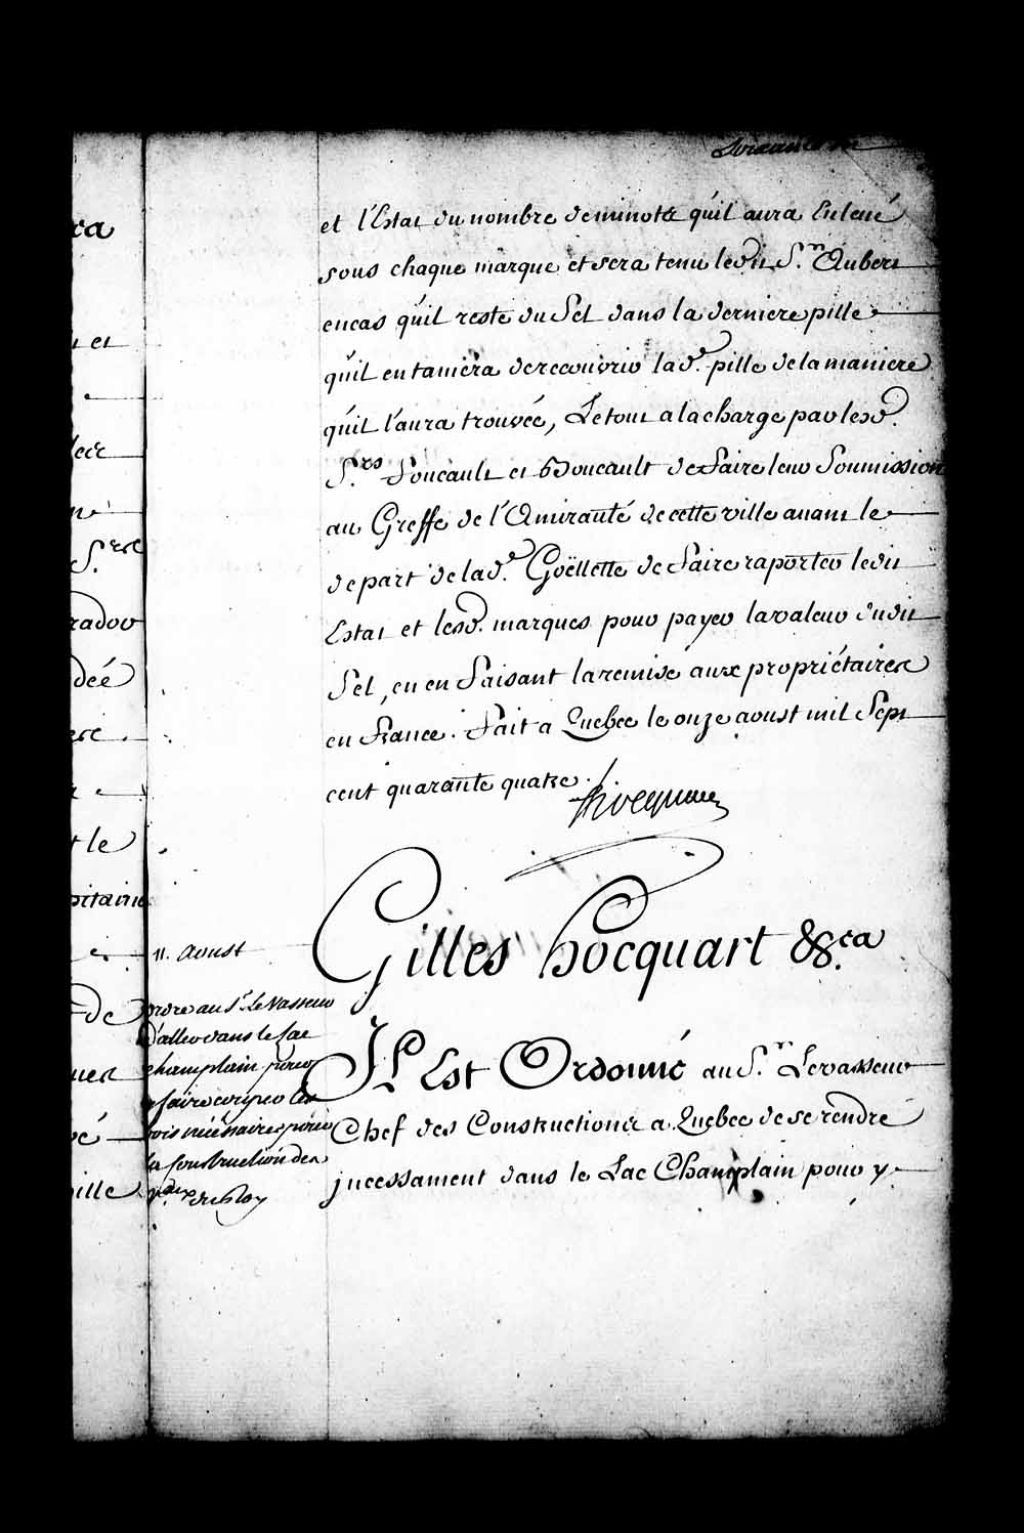 et l'Estat du nombre de minotte qu'il aura Enlevé
sous chaque marque et sera tenu ledit S.n Aubert
en cas qu'il reste du Sel dans la derniere pille
qu'il entamera de recouvrir lad.e pille de la maniere
qu'il l'aura trouvée, Le tout a la charge par lesd.
S.rs Foucault et Boucault de faire leur Soumission
au Greffe de l'Amirauté de cette ville avant le
depart de lad.e Goëllette de faire raporter ledit
Estat et lesd. marques pour payer la valeur dudit
Sel, ou en faisant la remise aux propriétaires
en France. Fait a Quebec le onze aoust mil Sept
cent quarante quatre.
Hocquart
Gilles hocquart &c.a
11. aoust
ordre au S.r Levasseur
d'aller dans le lac
champlain pour
y faire couper les
bois nécessaires pour
la Construction des
v.aux du Roy
IL Est Ordonné au S.r Levasseur
Chef des Constructions a Quebec de se rendre
jncessament dans le Lac Champlain pour y
ca
et
S.
rador
dée
t le
pitaine
de
ille